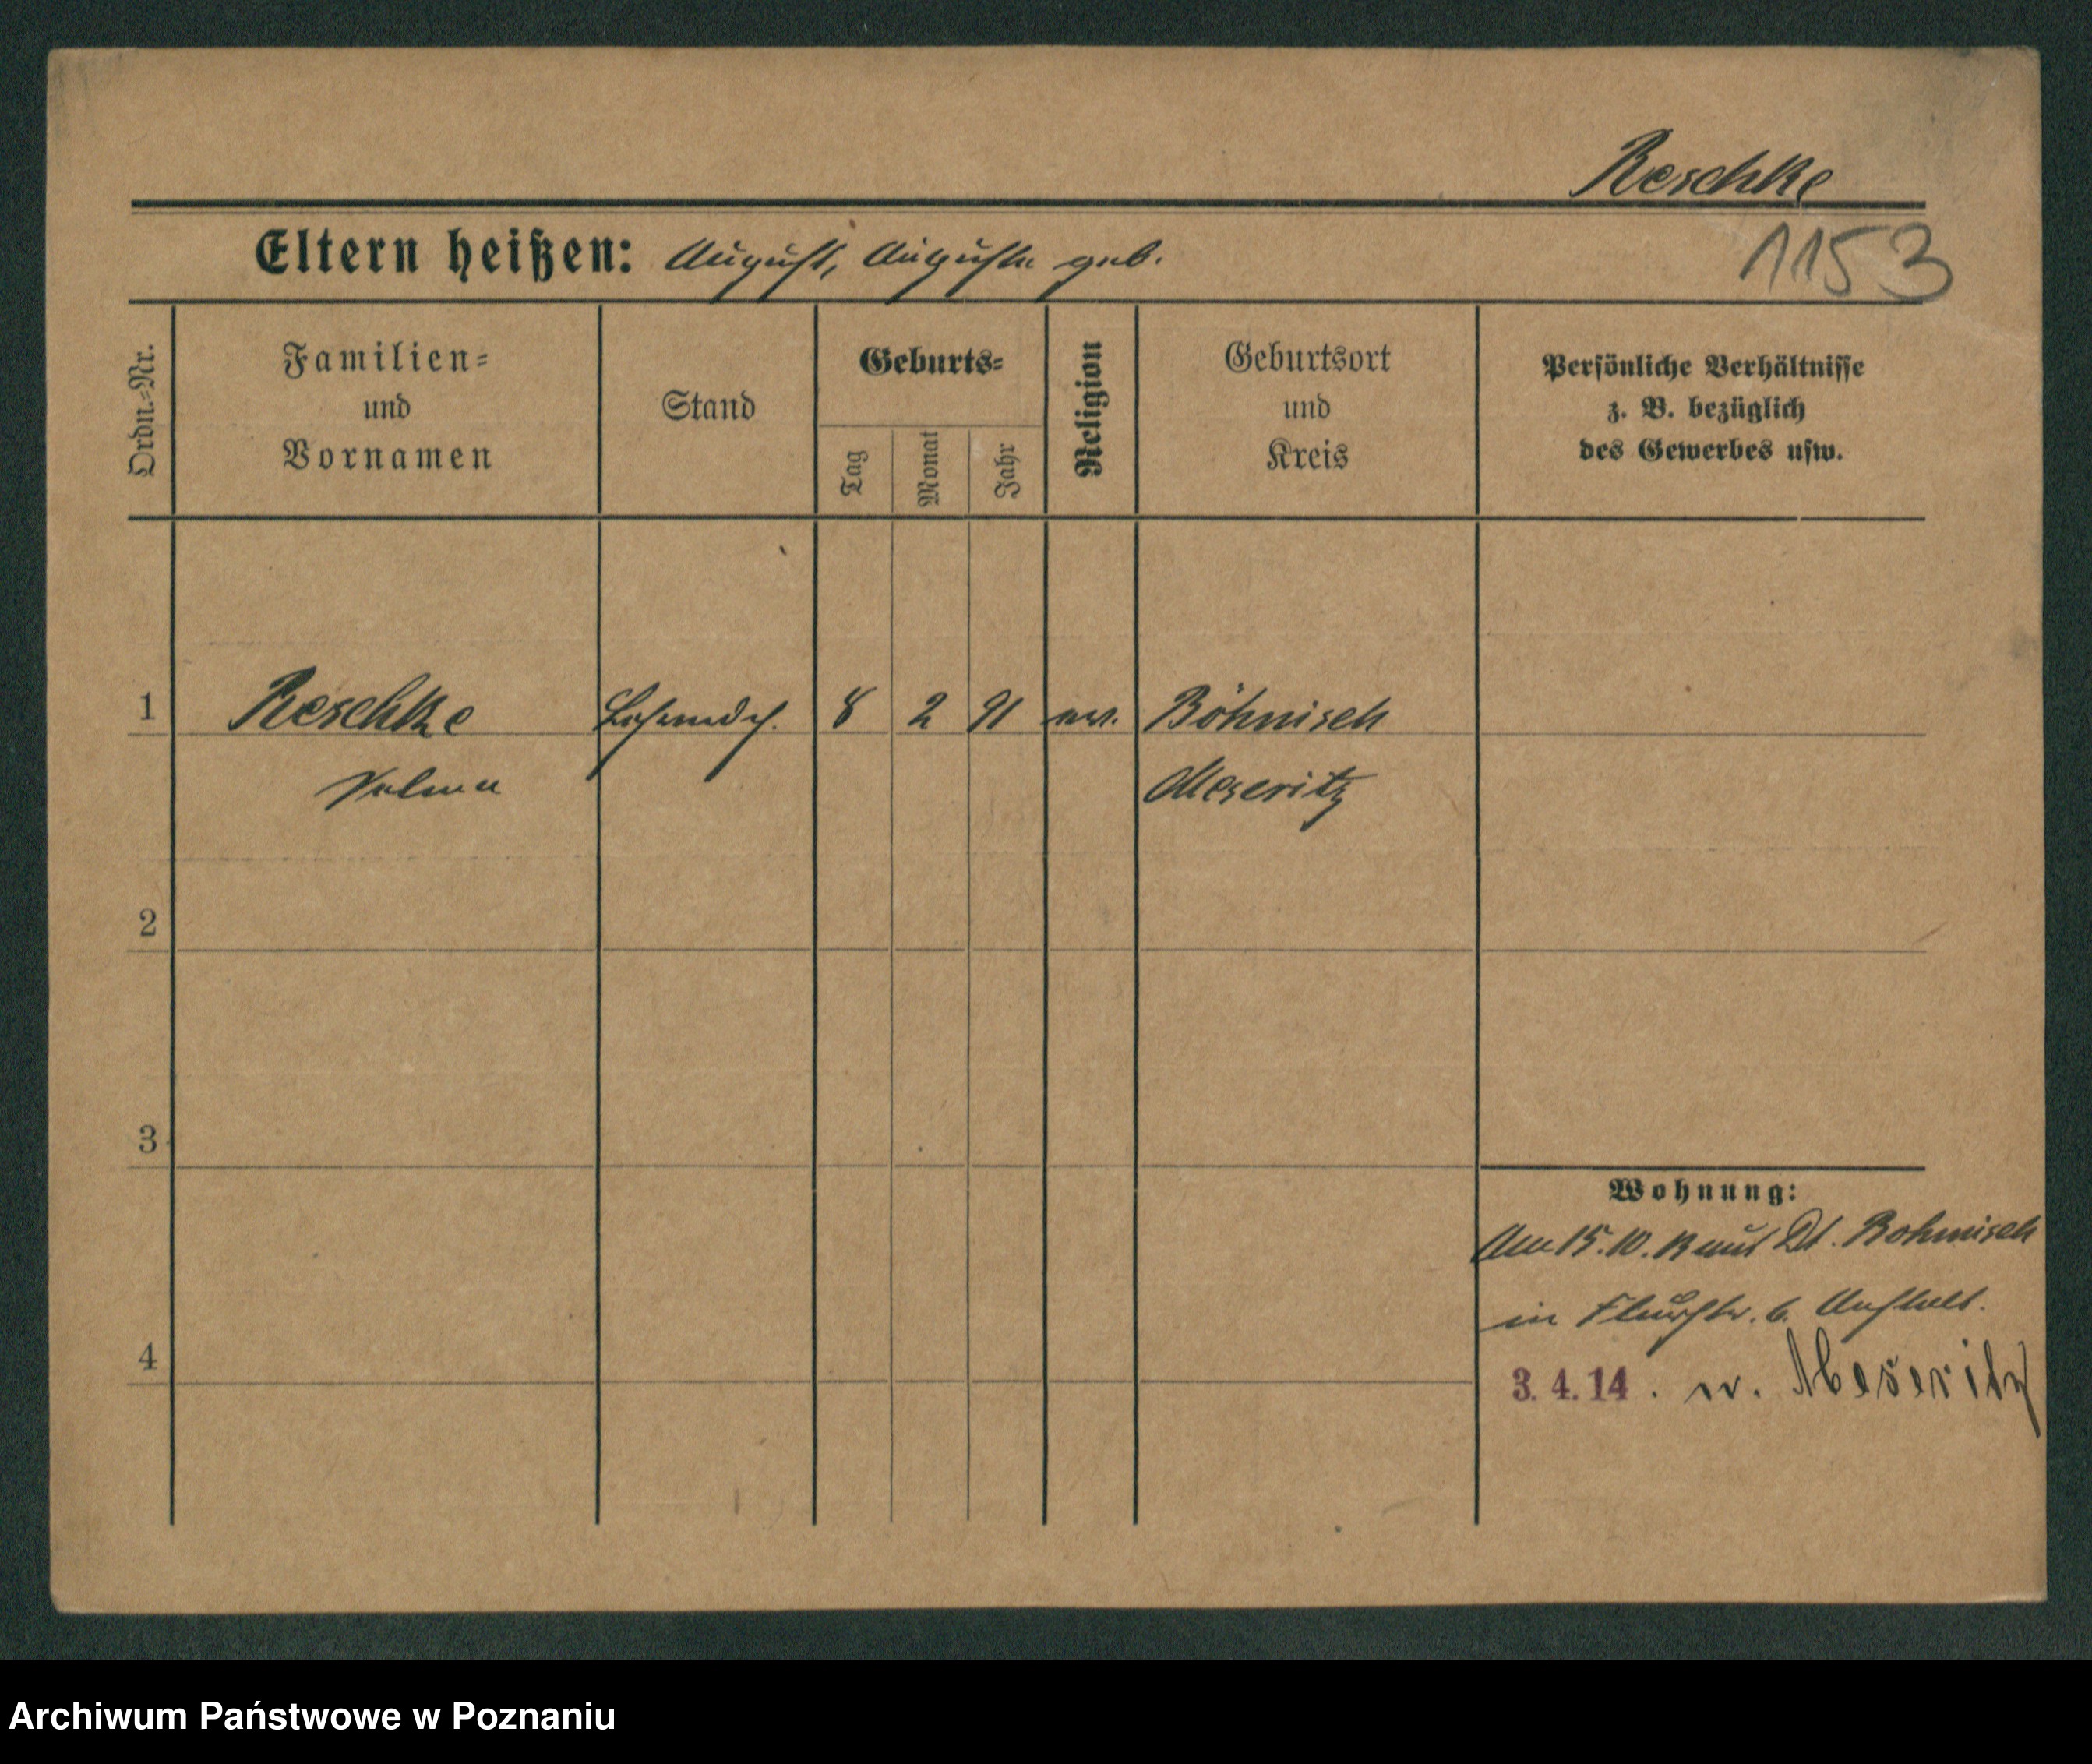 Reschke
Eltern heißen: August, Auguste geb.
1153
Ordn.-Nr.
Familien-
und
Vornamen
Stand
Geburts-
Tag
Monat
Jahr
Religion
Geburtsort
und
Kreis
Persönliche Verhältnisse
z. B. bezüglich
des Gewerbes usw.
1 Reschke 8 2 91 ev. Böhnisch
Meseritz
2
3
Wohnung:
Am 15.10.13 aus Dt. Bohmisch
in 6.
4
3.4.14. n. Meseritz
Archiwum Państwowe w Poznaniu